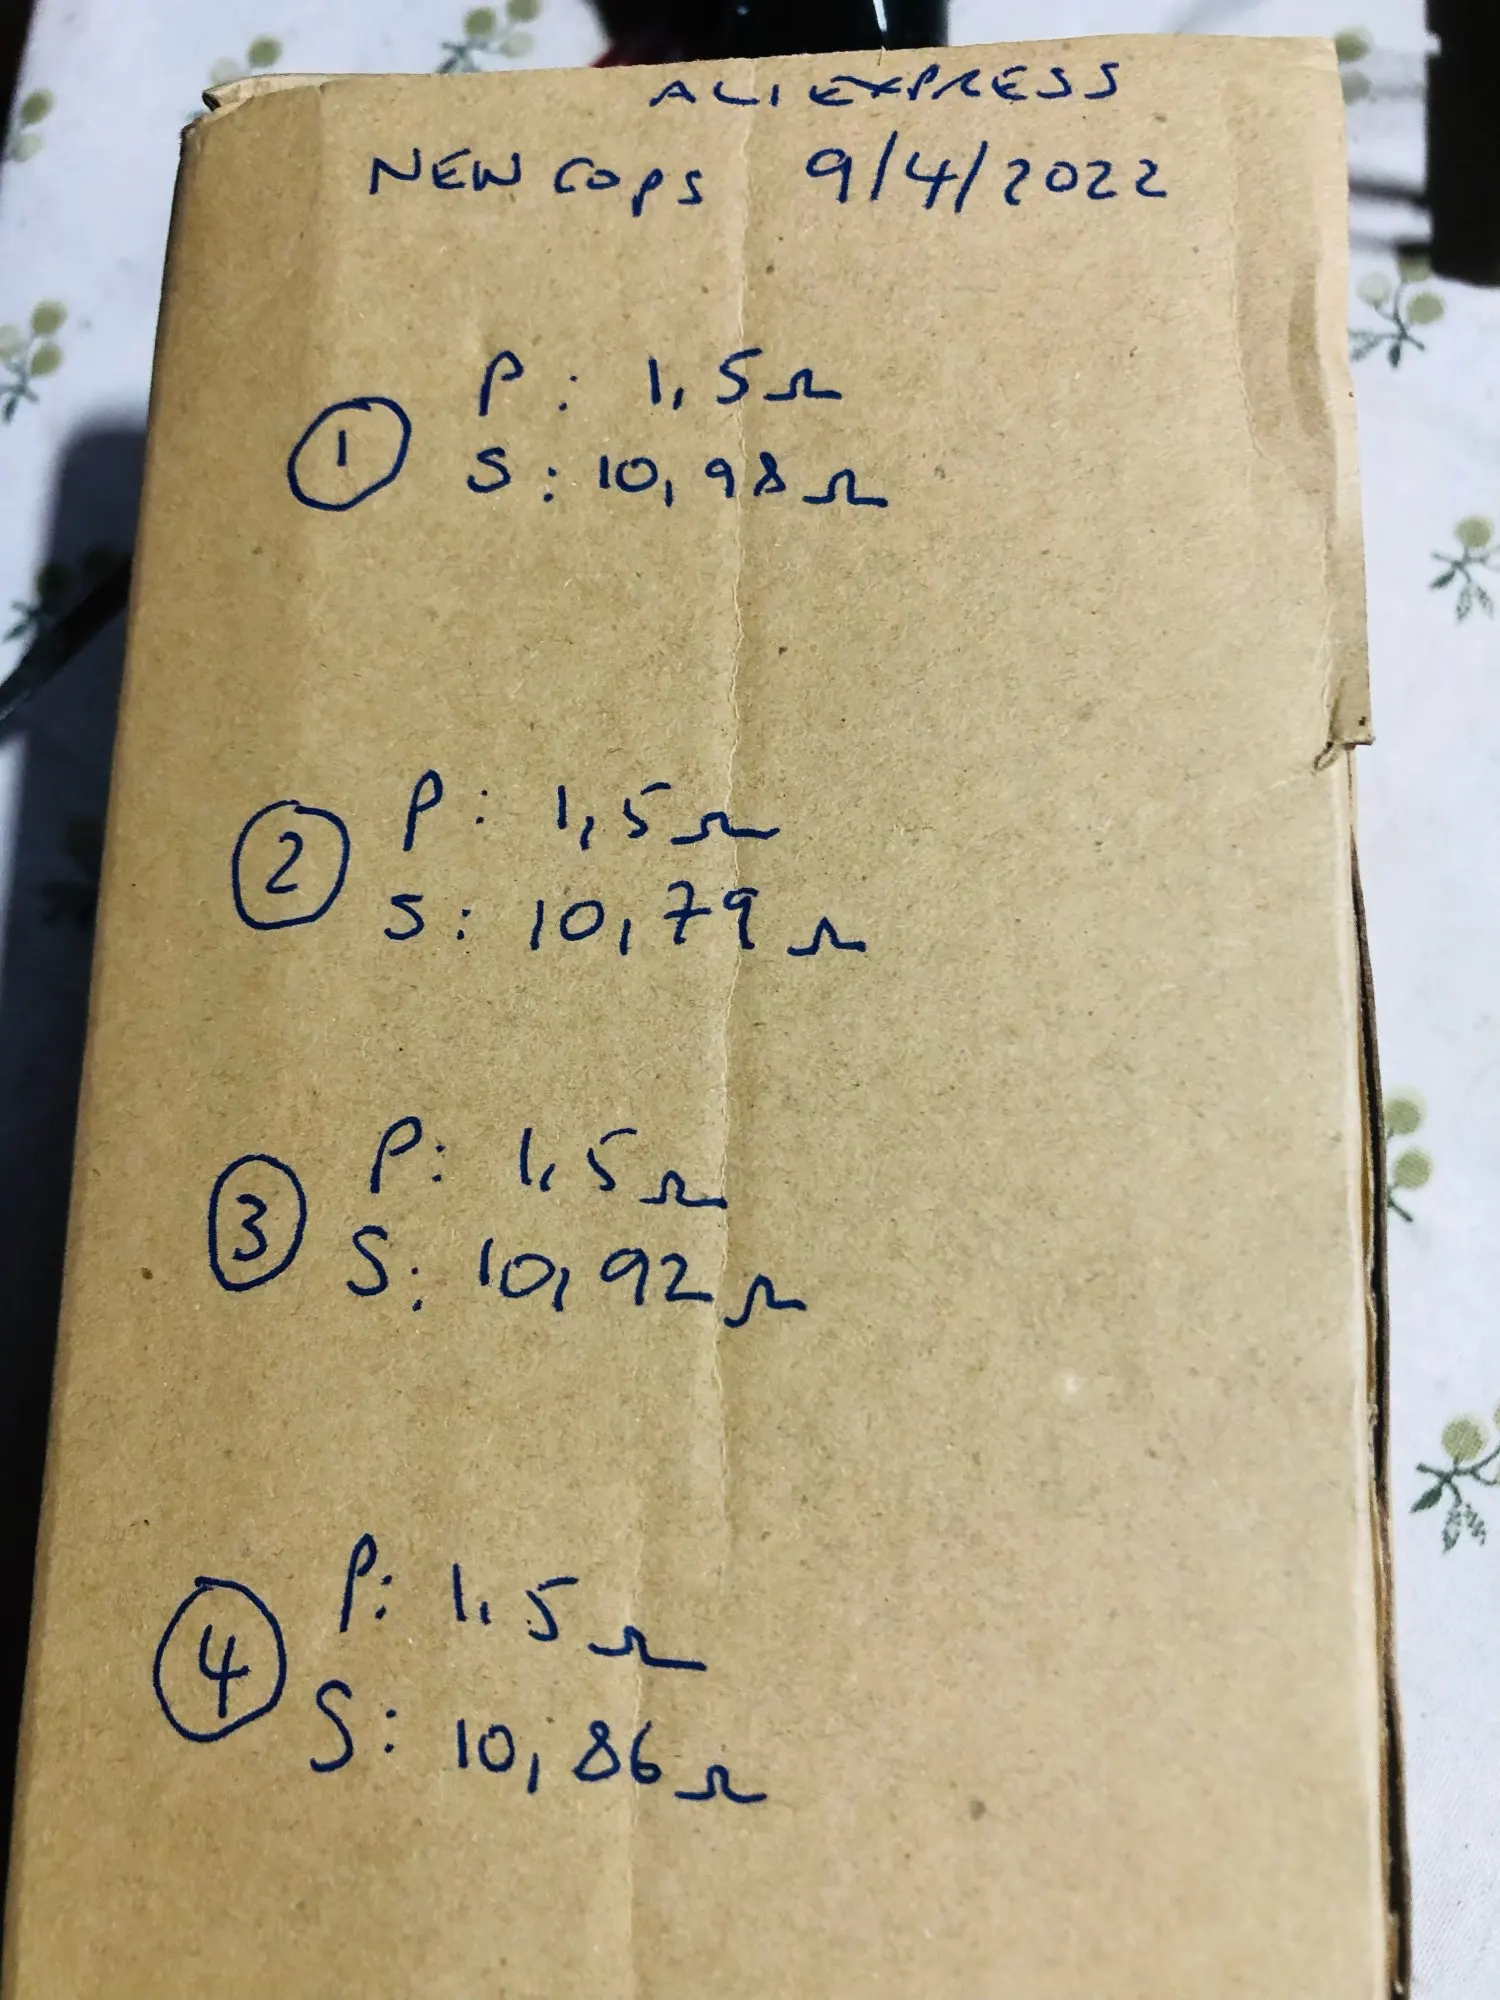 ALIEXPRESS
NEW COPS 9/4/2022
1 P: 1,5Ω
S: 10,98Ω
2 P: 1,5Ω
S: 10,79Ω
3 P: 1,5Ω
S: 10,92Ω
4 P: 1,5Ω
S: 10,86Ω